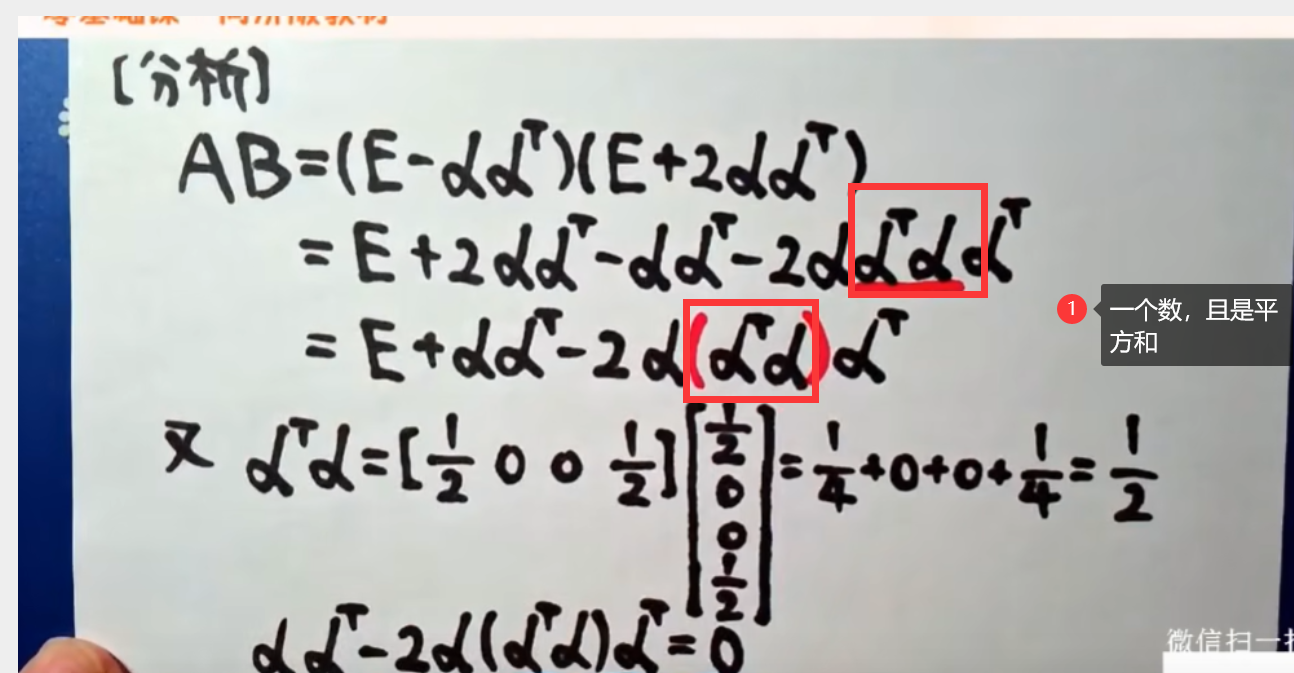 零基础课 高清版教材
[分析]
AB=(E-αα^T)(E+2αα^T)
=E+2αα^T-αα^T-2αα^Tαα^T
=E+αα^T-2α(α^Tα)α^T
1 一个数，且是平
方和
又 α^Tα=[1/2 0 0 1/2][1/2 0 0 1/2]=1/4+0+0+1/4=1/2
αα^T-2α(α^Tα)α^T=0
微信扫一扫